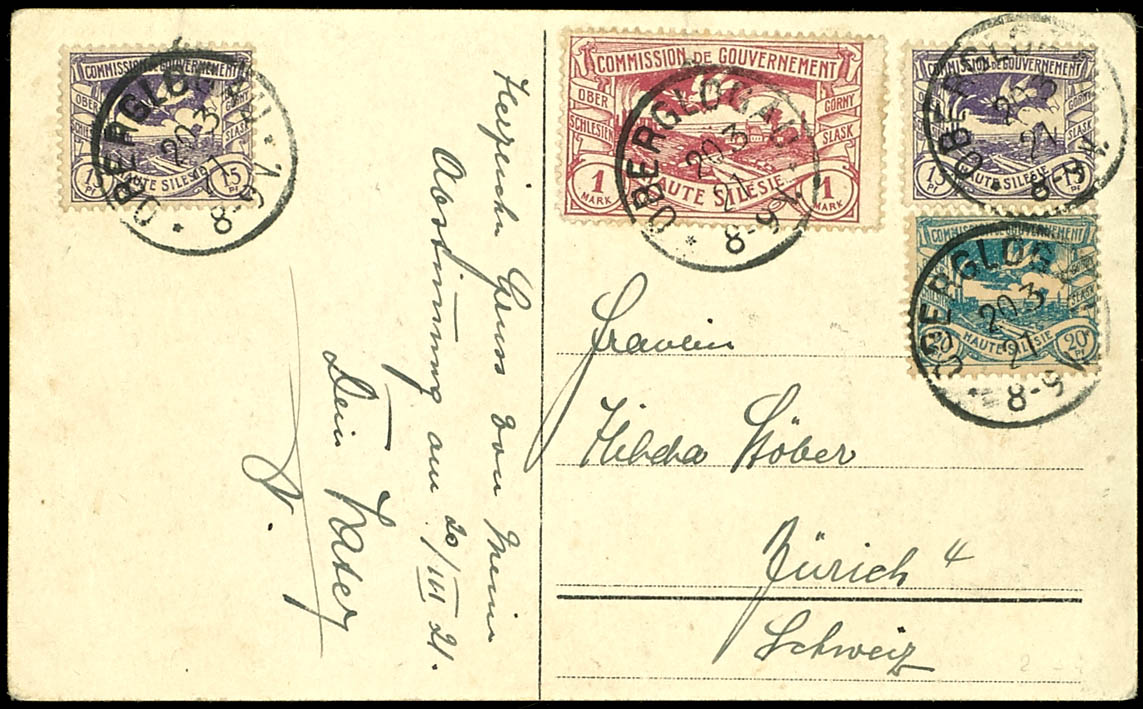 COMMISSION DE GOUVERNEMENT
OBER GORNY
SCHLESIEN SLASK
15 HAUTE SILESIE 15
Pf Pf
OBERGLOGAU
20.3
21
8-9 V.
* 1 *
COMMISSION DE GOUVERNEMENT
OBER GORNY
SCHLESIEN SLASK
1 HAUTE SILESIE 1
MARK MARK
OBERGLOGAU
20.3
21
8-9 V.
*
COMMISSION DE GOUVERNEMENT
GORNY
SLASK
15 HAUTE SILESIE 15
OBERGLOGAU
20.3
21
8-9 V.
COMMISSION DE GOUVERNEMENT
SCHLESIEN SLASK
20 HAUTE SILESIE 20
Pf
OBERGLOGAU
20.3
21
8-9 V.
Gruss von Meine
Abstimmung am 20/III 21.
Dein Vater
Fraulein
Hilda Stöber
Zürich 4
Schweiz